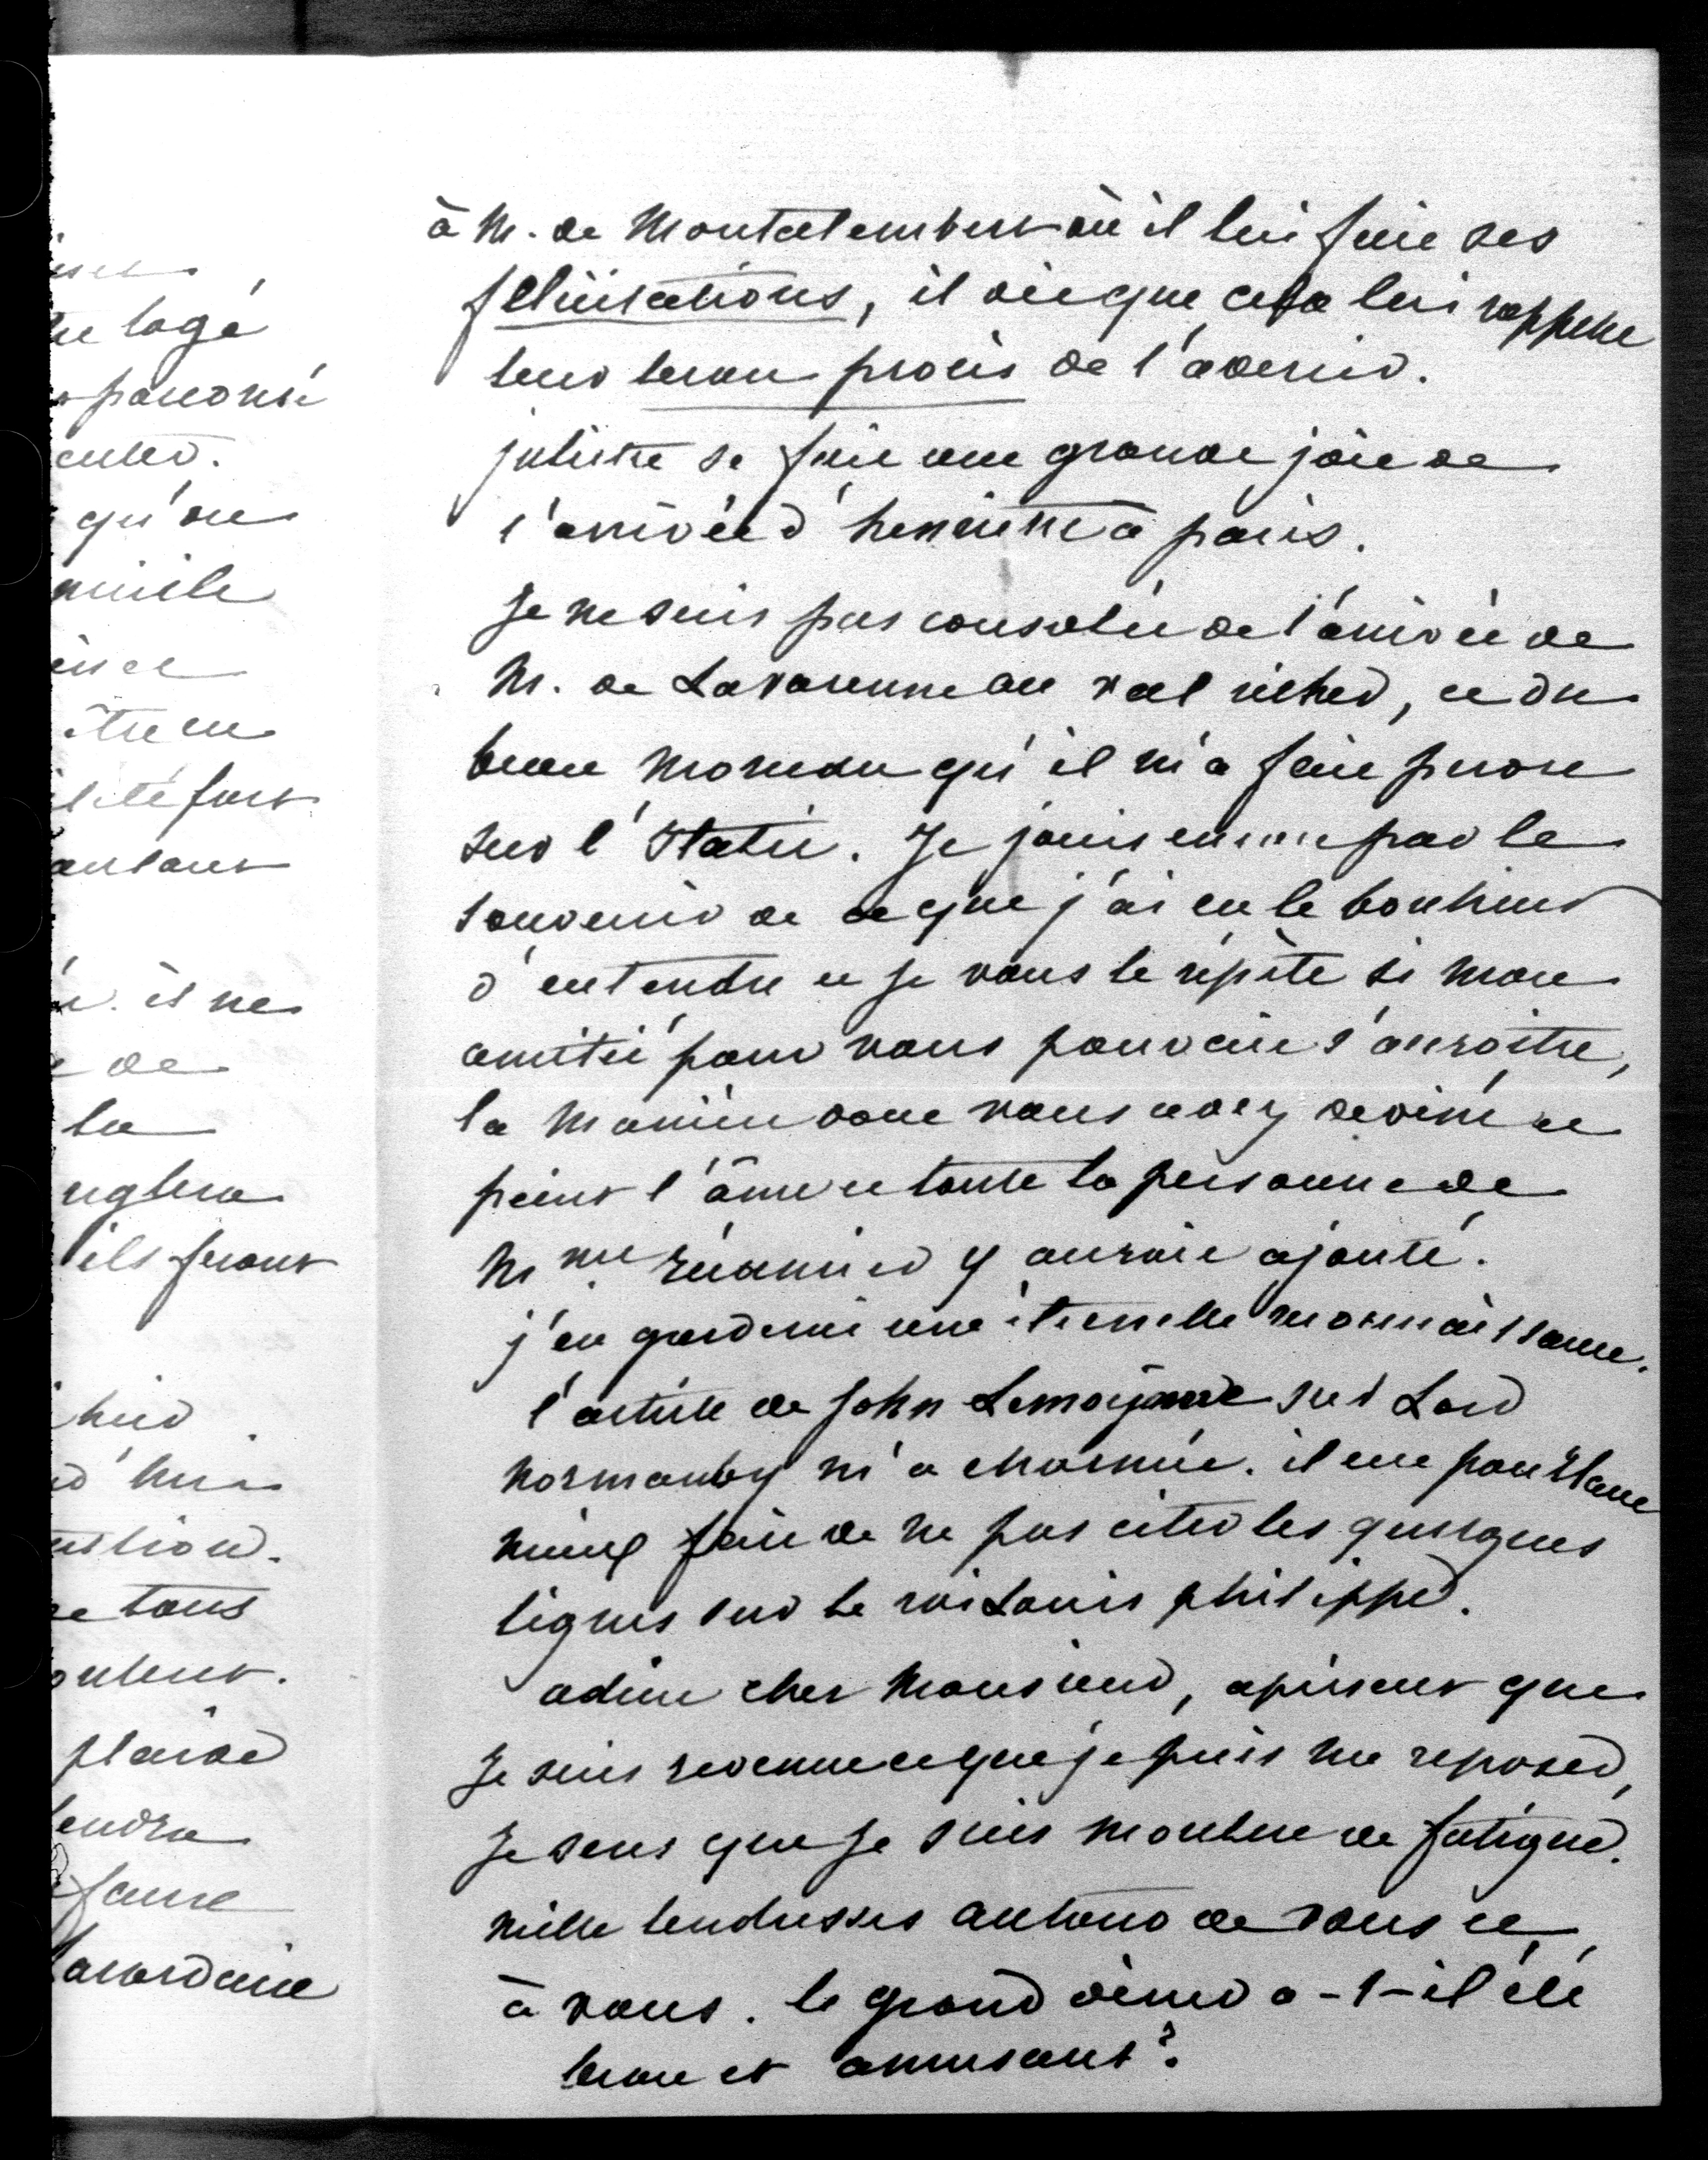 à M. de Montalembert où il lui fait ses
félicitations, il dit que cela lui rappelle
leur beau procès de l'avenir.
juliette se fait une grande joie de
l'arrivée d'henriette à paris.
Je ne suis pas consolée de l'arrivée de
M. de Lavarenne au val richer, et du
beau morceau qu'il m'a fait perdre
sur l'Italie. Je jouis encore par le
souvenir de ce que j'ai eu le bonheur
d'entendre et je vous le répète si mon
amitié pour vous pouvait s'accroître,
la manière dont vous avez deviné et
peint l'âme et toute la personne de
Mme Récamier y auroit ajouté.
j'en garderai une éternelle reconnaissance.
l'article de John Lemoinne sur Lord
Normanby m'a charmée. il eut pourtant
mieux fait de ne pas citer les quelques
lignes sur le roi Louis philippe.
adieu cher Monsieur, à présent que
Je suis revenue et que je puis me reposer,
Je sens que je suis moulue de fatigue.
mille tendresses autour de vous et
à vous. le grand dîner a-t-il été
beau et amusant?
tre logé
qu'on
être en
il ne
de
la
ils feront
tous
plaide